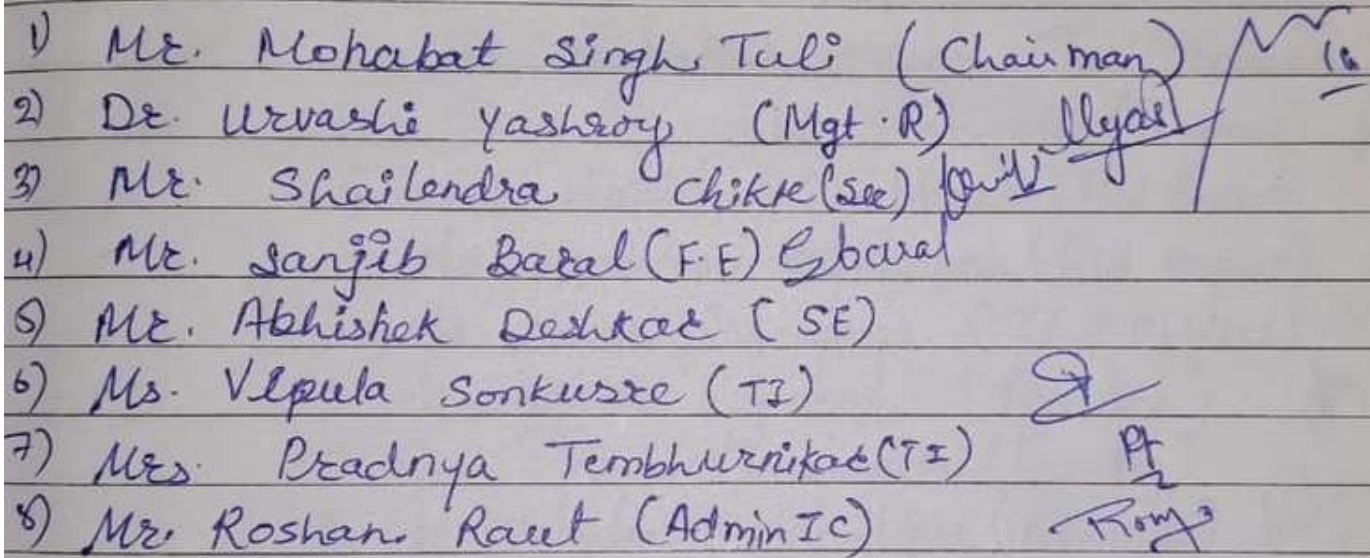 1) Mr. Mohabat Singh Tuli (Chairman)
2) Dr. Urvashi Yashroy (Mgt. R)
3) Mr. Shailendra Chikte (Sec)
4) Mr. Sanjib Baral (F.E) Sbaral
5) Mr. Abhishek Deshkar (SE)
6) Ms. Vipula Sonkusre (TI)
7) Mrs. Pradnya Tembhurnikar (TI)
8) Mr. Roshan Raut (Admin IC)